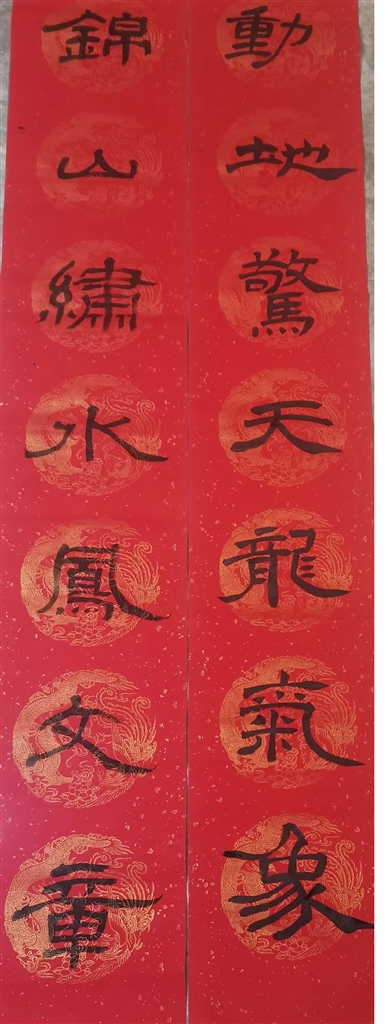 動地驚天龍氣象
錦山繡水鳳文章